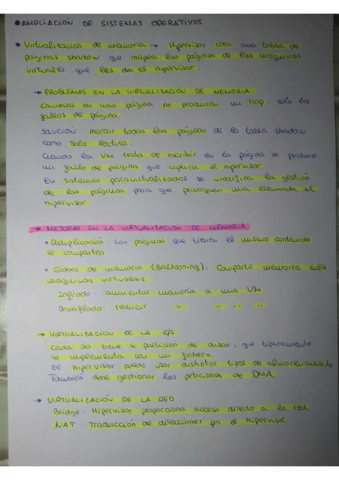 • AMPLIACIÓN DE SISTEMAS OPERATIVOS
• Virtualización de memoria → Hipervisor crea una tabla de
páginas shadow que mapea las páginas de las máquinas
virtuales que les da el hipervisor.
→ PROBLEMAS EN LA VIRTUALIZACIÓN DE MEMORIA
Cambios en una página no producen un trap, solo los
fallos de página.
SOLUCIÓN marcar todas las páginas de la tabla shadow
como solo lectura.
Cuando la VM trata de escribir en la página se produce
un fallo de página que captura el hipervisor.
En sistemas paravirtualizados se modifica la gestión
de las páginas para que provoquen una llamada al
hipervisor.
→ MEJORAS EN LA VIRTUALIZACIÓN DE MEMORIA
• Deduplicación: Las páginas que tienen el mismo contenido
se comparten
• Globos de memoria (Ballooning): Comparte memoria entre
máquinas virtuales.
Inflado: aumentar memoria a una VM
Desinflado: reducir " " " "
→ VIRTUALIZACIÓN DE LA E/S
Cada SO tiene su partición de disco que típicamente
se implementa con un fichero.
El hipervisor puede usar distintos tipos de almacenamiento
También debe gestionar las peticiones de DMA.
→ VIRTUALIZACIÓN DE LA RED
Bridge: Hipervisor proporciona acceso directo a la red.
NAT: Traducción de direcciones por el hipervisor